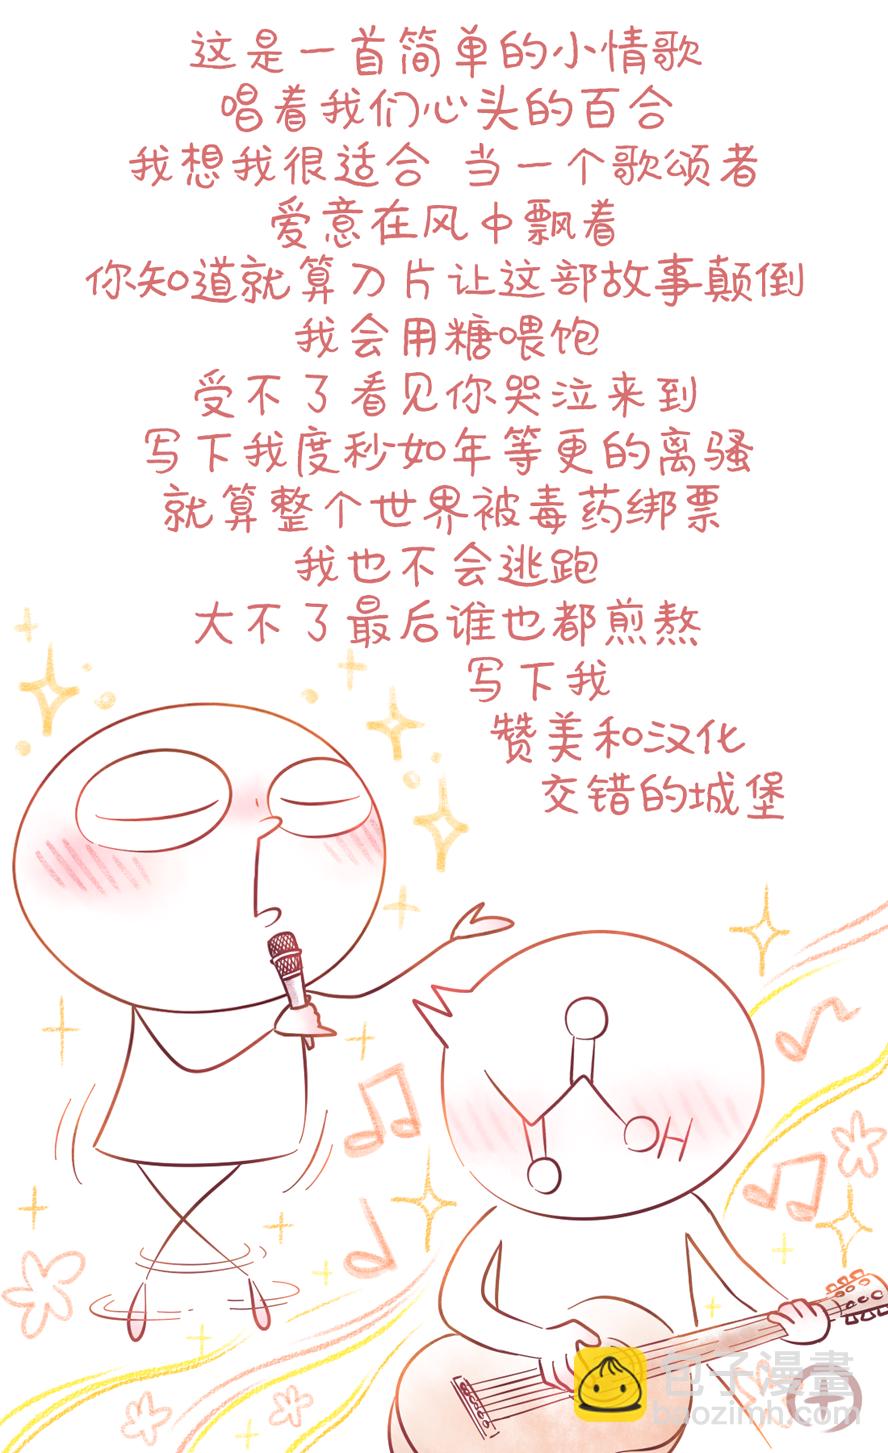 这是一首简单的小情歌
唱着我们心头的百合
我想我很适合 当一个歌颂者
爱意在风中飘着
你知道就算刀片让这部故事颠倒
我会用糖喂饱
受不了看见你哭泣来到
写下我度秒如年等更的离骚
就算整个世界被毒药绑票
我也不会逃跑
大不了最后谁也都煎熬
写下我
赞美和汉化
交错的城堡
OH
包子漫畫
baozimh.com